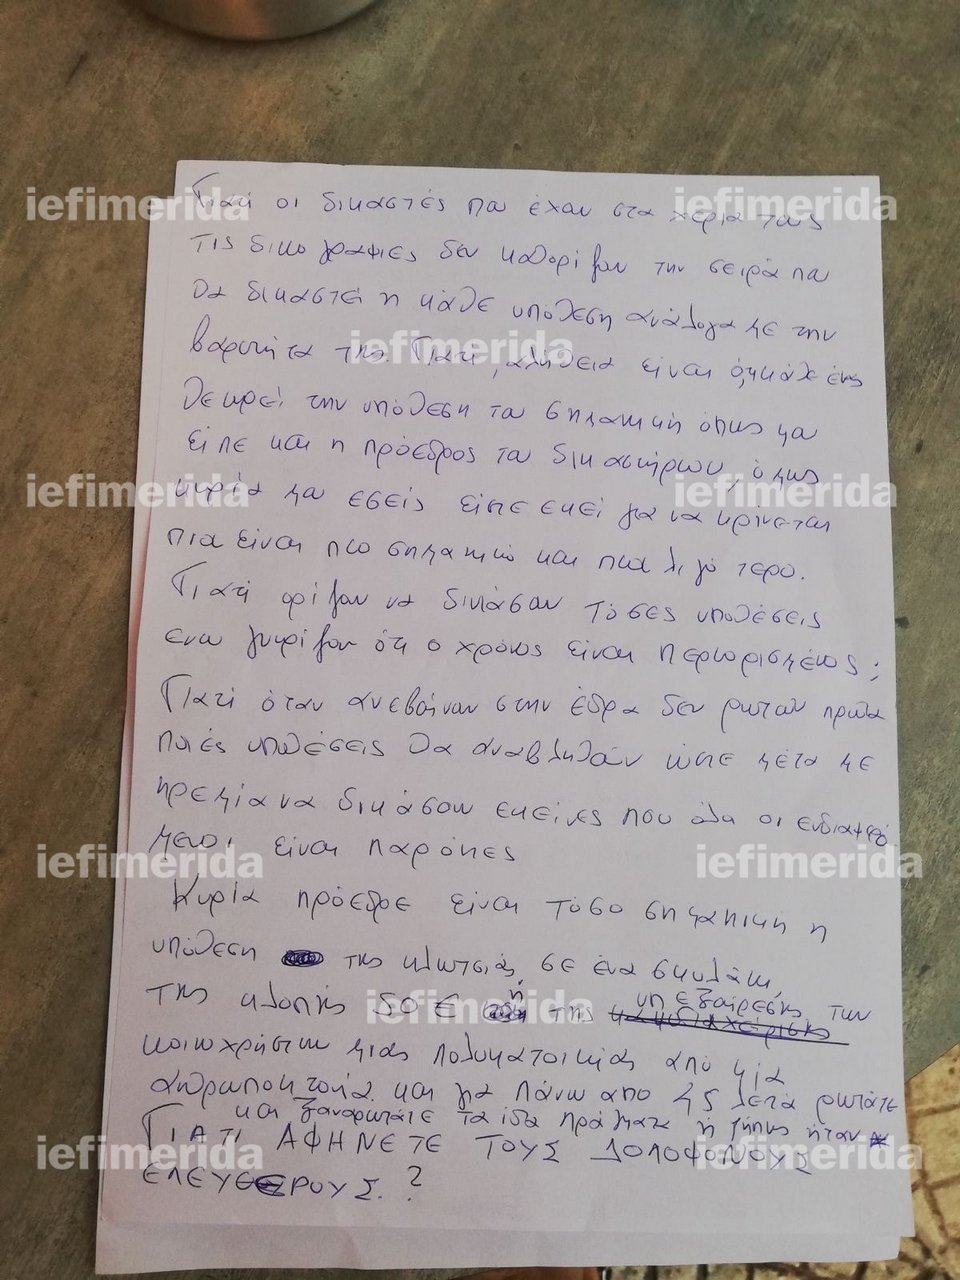 Γιατί οι δικαστές που έχουν στα χέρια τους
τις δικογραφίες δεν καθορίζουν την σειρά που
θα δικαστεί η κάθε υπόθεση ανάλογα με την
βαρύτητα της. Γιατί, αλήθεια είναι ότι κάθε ένας
θεωρεί την υπόθεση του σημαντική όπως μου
είπε και η πρόεδρος του δικαστηρίου, όμως
κυρία μου εσείς είστε εκεί για να κρίνεται
ποια είναι πιο σημαντικό και ποια λιγότερο.
Γιατί ορίζουν να δικάσουν τόσες υποθέσεις
ενώ γνωρίζουν ότι ο χρόνος είναι περιορισμένος;
Γιατί όταν ανεβαίνουν στην έδρα δεν ρωτούν πρώτα
ποιές υποθέσεις θα αναβληθούν ώστε μετά με
ηρεμία να δικάσουν εκείνες που όλοι οι ενδιαφερό
μενοι είναι παρόντες
Κυρία πρόεδρε είναι τόσο σημαντική η
υπόθεση της κλωτσιάς σε ένα σκυλάκι,
της κλοπής 50 € ή της μη εξαίρεσης των
κοινοχρήστων μιας πολυκατοικίας από μία
ανθρωποκτονία και για πάνω από 45 λεπτά ρωτάτε
και ξαναρωτάτε τα ίδια πράγματα ή μήπως ήταν
ΓΙΑΤΙ ΑΦΗΝΕΤΕ ΤΟΥΣ ΔΟΛΟΦΟΝΟΥΣ
ΕΛΕΥΘΕΡΟΥΣ.?
iefimerida
iefimerida
iefimerida
iefimerida
iefimerida
iefimerida
iefimerida
iefimerida
iefimerida
iefimerida